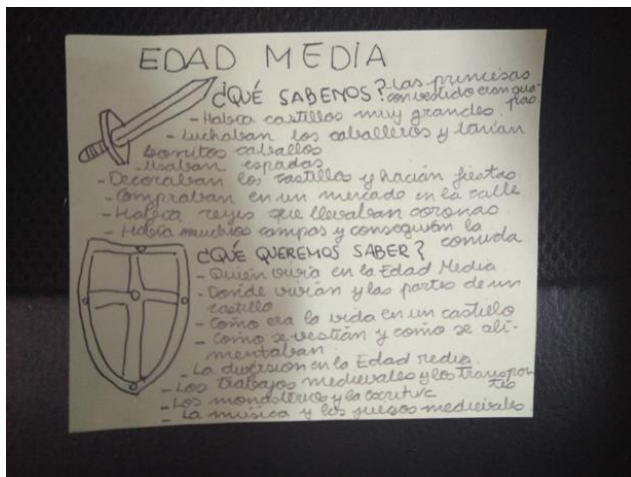 EDAD MEDIA
¿QUÉ SABEMOS? - Las princesas
con vestido eran guapas.
- Había castillos muy grandes
- Luchaban los caballeros y tenían
bonitos caballos
- Usaban espadas
- Decoraban los castillos y hacían fiestas
- Compraban en un mercado en la calle
- Había reyes que llevaban coronas
- Había muchos campos y conseguían la
comida
¿QUÉ QUEREMOS SABER?
- Quién vivía en la Edad Media
- Donde vivían y las partes de un
castillo
- Como era la vida en un castillo
- Como se vestían y como se ali-
mentaban
- La diversión en la Edad Media
- Los trabajos medievales y los transpor-
tes
- Los monasterios y la escritura
- La música y los juegos medievales